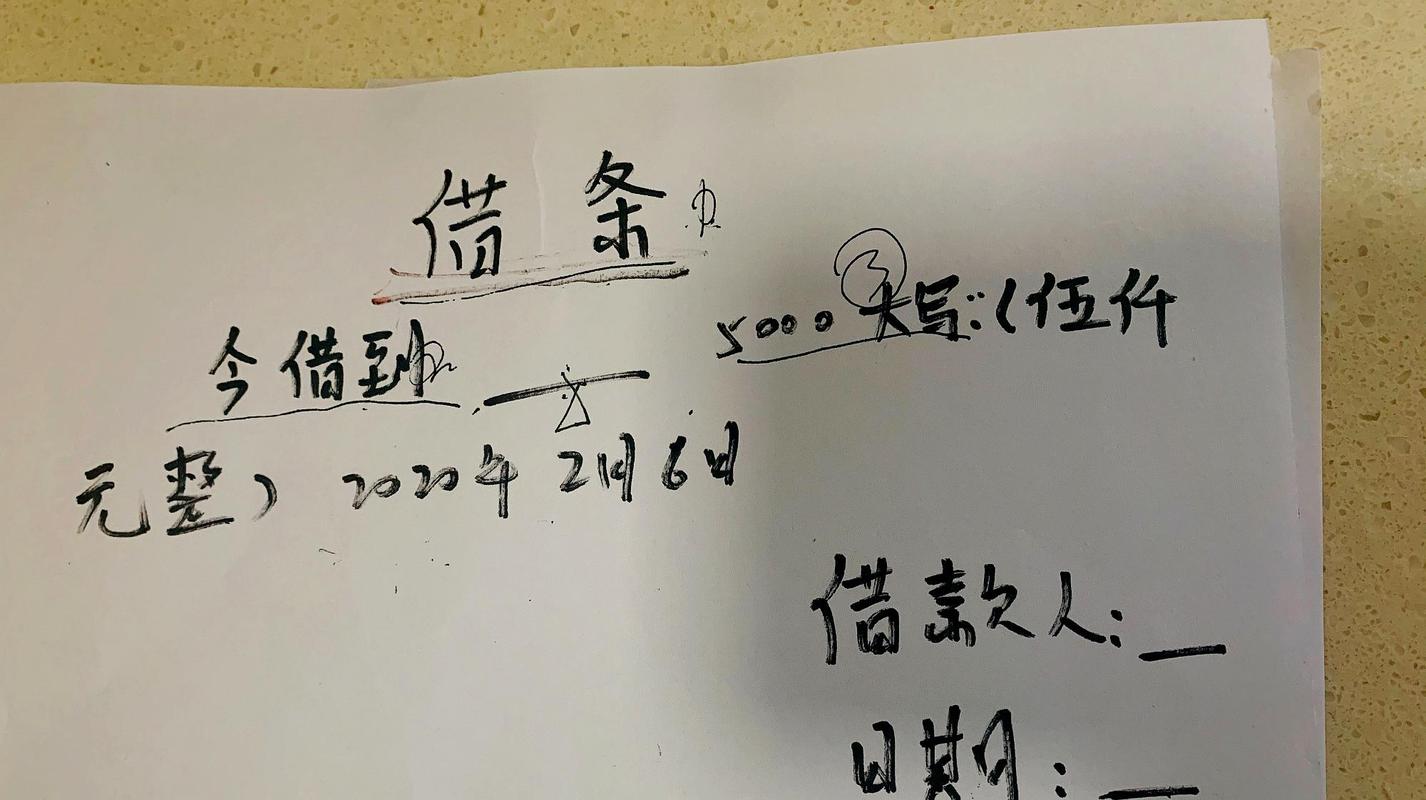 借条
今借到 — 5000大写:(伍仟
元整) 2020年2月6日
借款人:_
日期:_